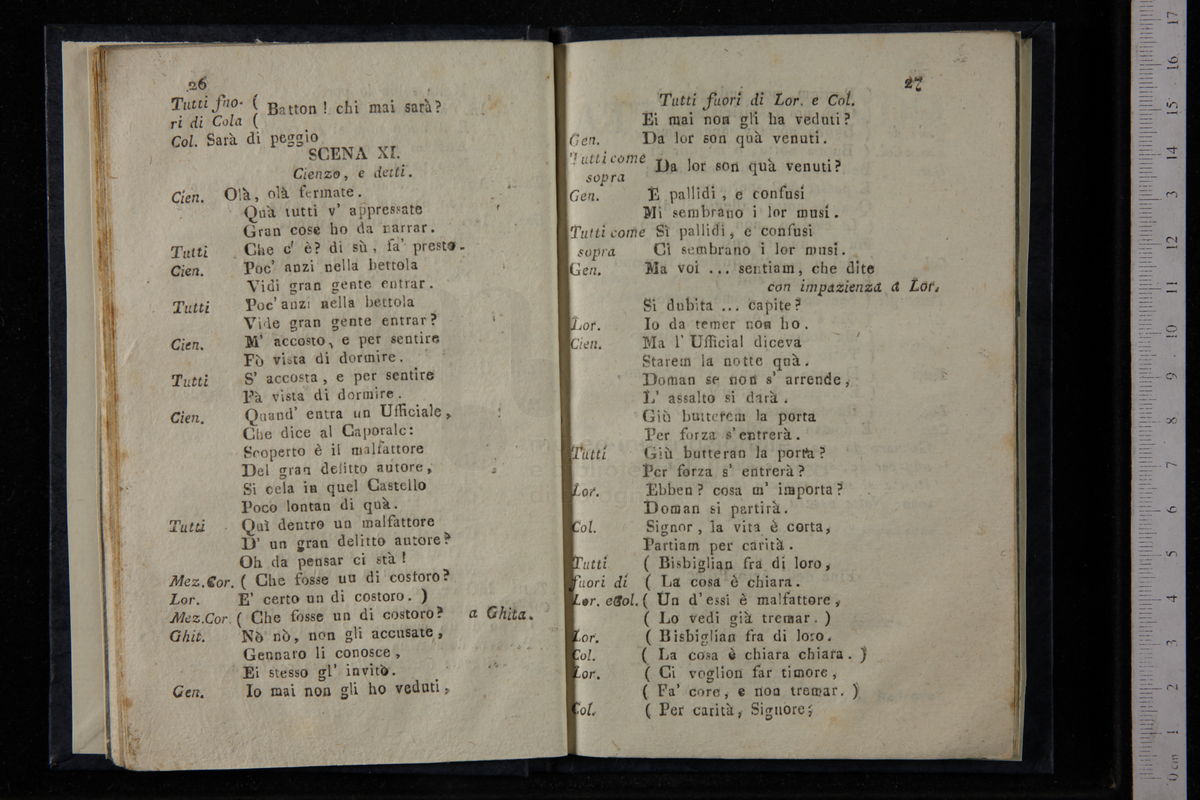 26
Tutti fuo- ( Batton ! chi mai sarà?
ri di Cola (
Col. Sarà di peggio
SCENA XI.
Cienzo, e detti.
Cien. Olà, olà fermate.
Quà tutti v' appressate
Gran cose ho da narrar.
Tutti Che c' è? di sù, fa' presto.
Cien. Poc' anzi nella bettola
Vidi gran gente entrar.
Tutti Poc' anzi nella bettola
Vide gran gente entrar?
Cien. M' accosto, e per sentire
Fò vista di dormire.
Tutti S' accosta, e per sentire
Fà vista di dormire.
Cien. Quand' entra un Ufficiale,
Che dice al Caporale:
Scoperto è il malfattore
Del gran delitto autore,
Si cela in quel Castello
Poco lontan di quà.
Tutti Quì dentro un malfattore
D' un gran delitto autore?
Oh da pensar ci stà!
Mez.Cor. ( Che fosse un di costoro?
Lor. E' certo un di costoro. )
Mez.Cor. ( Che fosse un di costoro? a Ghita.
Ghit. Nò nò, non gli accusate,
Gennaro li conosce,
Ei stesso gl' invitò.
Gen. Io mai non gli ho veduti,
27
Tutti fuori di Lor. e Col.
Ei mai non gli ha veduti?
Gen. Da lor son quà venuti.
Tutti come Da lor son quà venuti?
sopra
Gen. E pallidi, e confusi
Mi sembrano i lor musi.
Tutti come Sì pallidi, e confusi
sopra Ci sembrano i lor musi.
Gen. Ma voi ... sentiam, che dite
con impazienza a Lor.
Si dubita ... capite?
Lor. Io da temer non ho.
Cien. Ma l' Ufficial diceva
Starem la notte quà.
Doman se non s' arrende,
L' assalto si darà.
Giù butterem la porta
Per forza s' entrerà.
Tutti Giù butteran la porta?
Per forza s' entrerà?
Lor. Ebben? cosa m' importa?
Doman si partirà.
Col. Signor, la vita è corta,
Partiam per carità.
Tutti ( Bisbiglian fra di loro,
fuori di ( La cosa è chiara.
Lor. e Col. ( Un d' essi è malfattore,
( Lo vedi già tremar. )
Lor. ( Bisbiglian fra di loro.
Col. ( La cosa è chiara chiara. )
Lor. ( Ci voglion far timore,
( Fa' core, e non tremar. )
Col. ( Per carità, Signore;